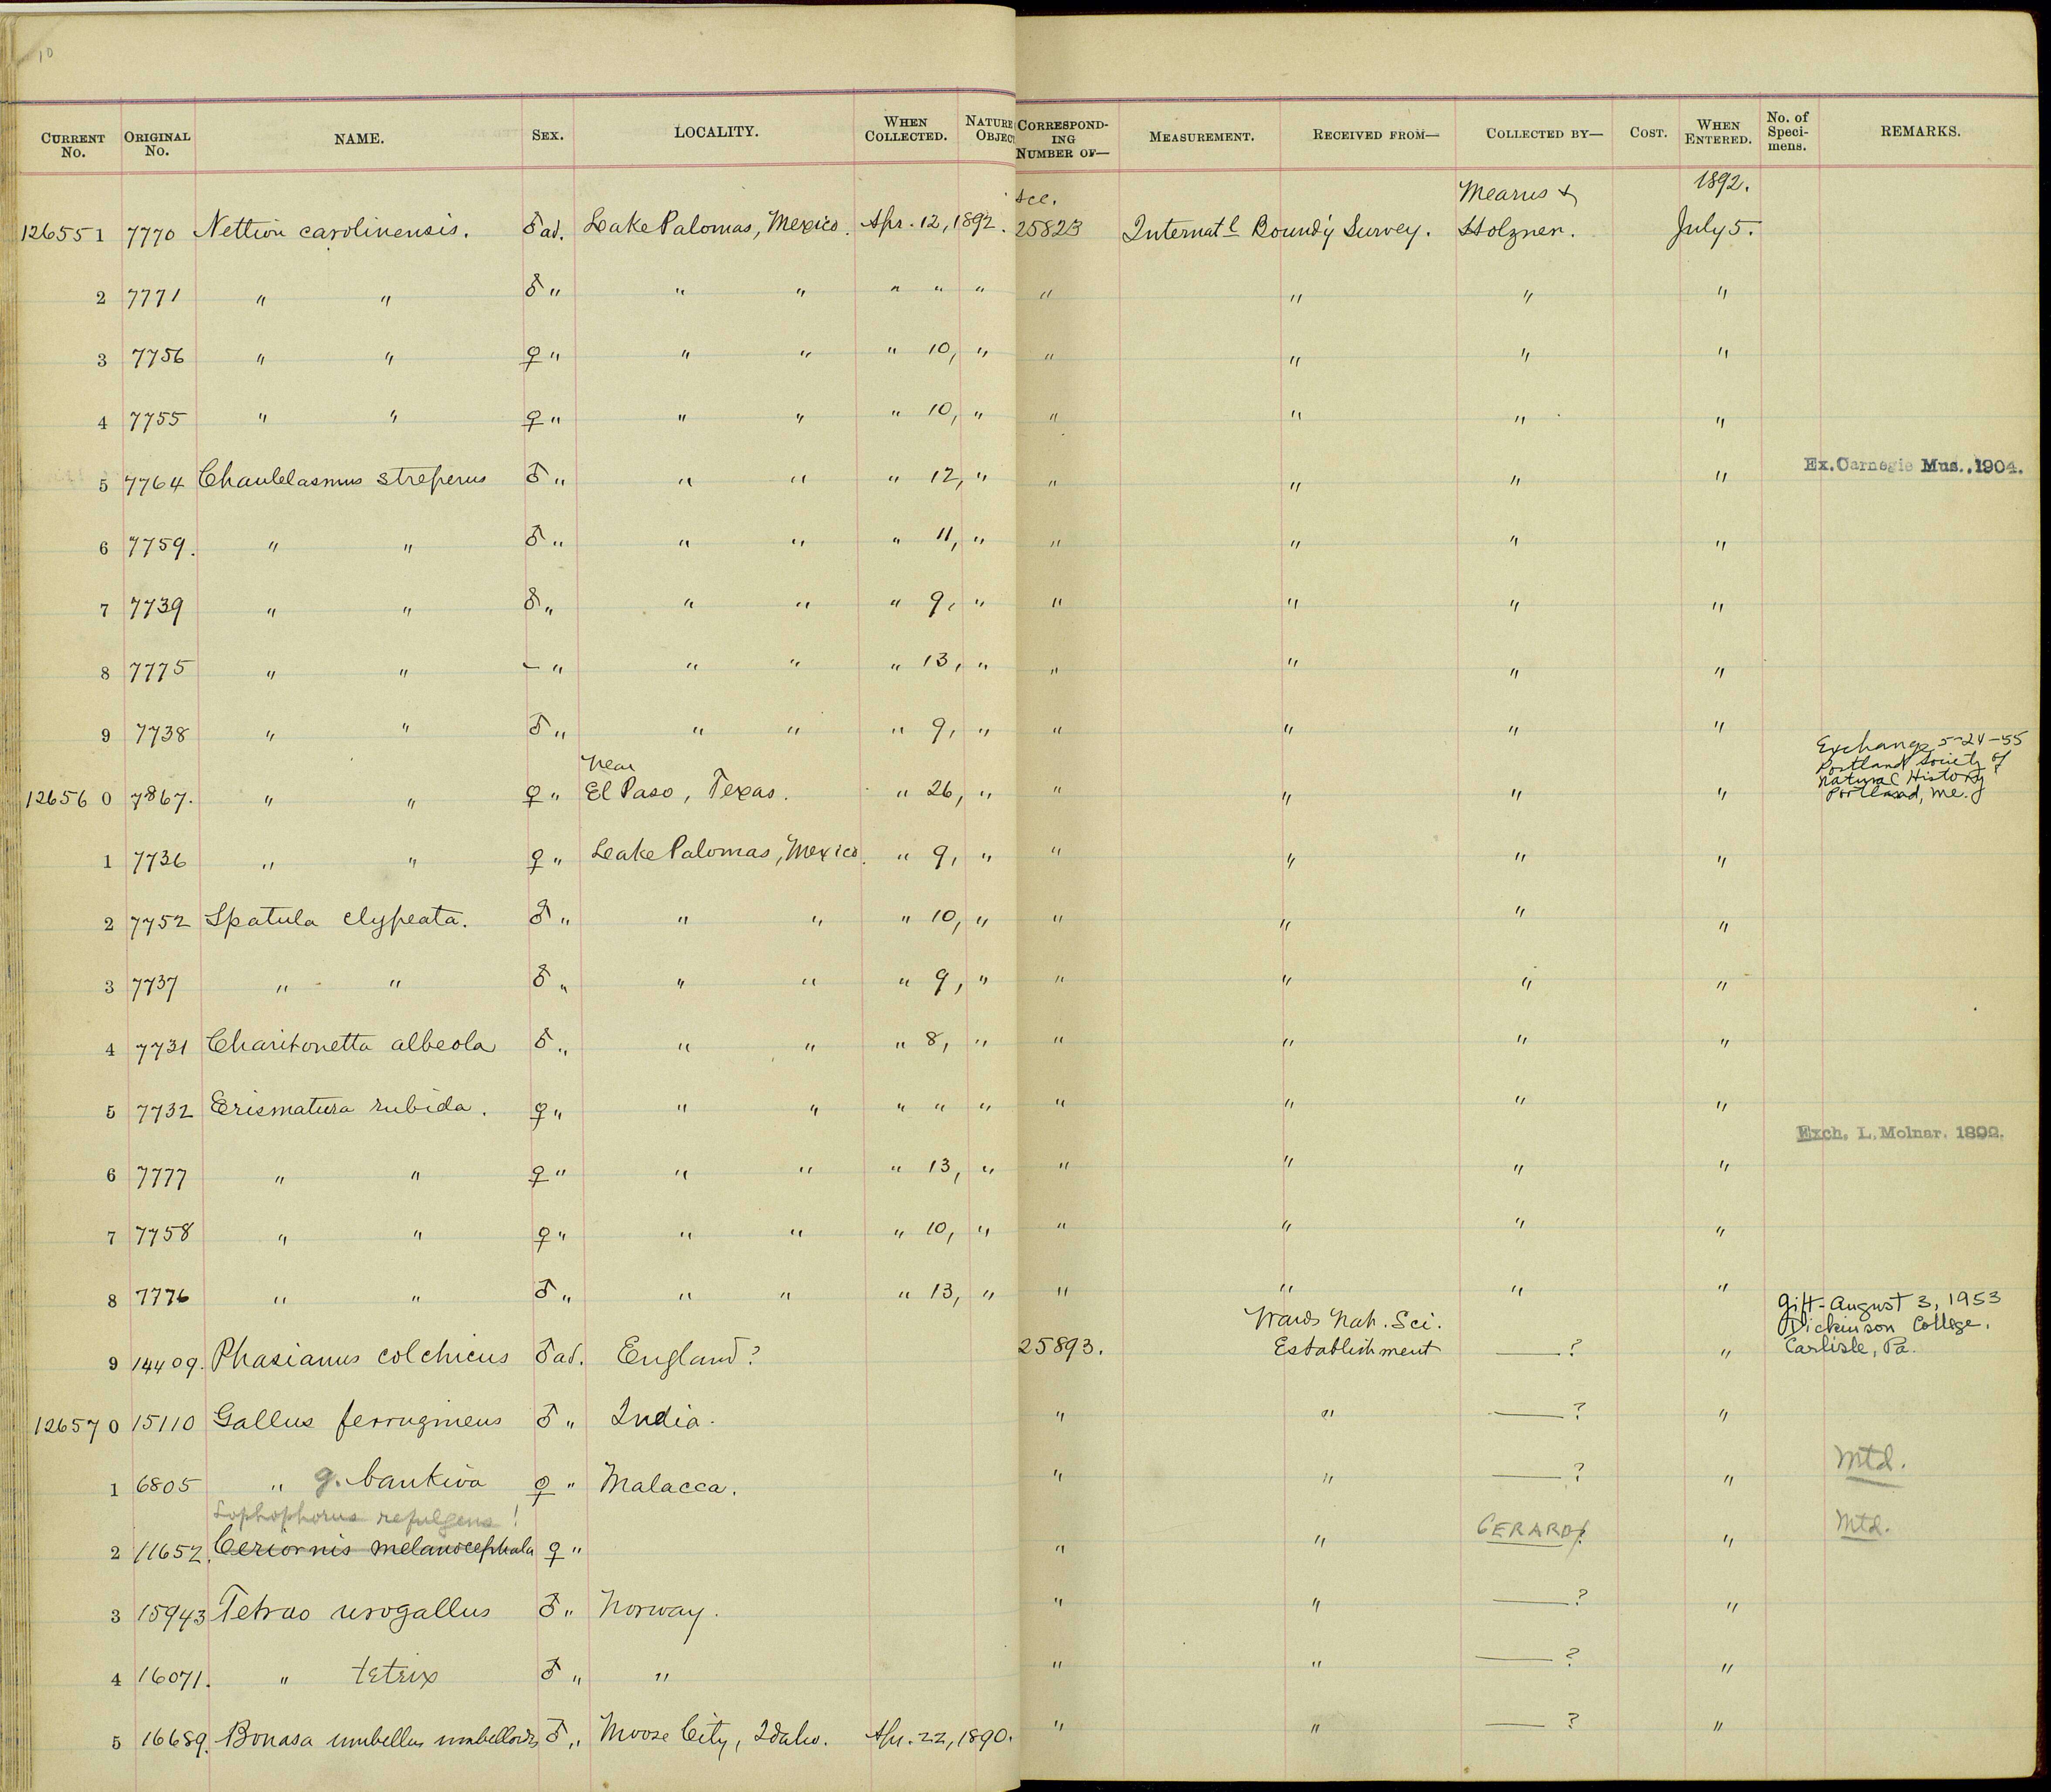 10
CURRENT No. ORIGINAL No. NAME. SEX. LOCALITY. WHEN COLLECTED. NATURE OBJECT CORRESPONDING NUMBER OF— MEASUREMENT. RECEIVED FROM— COLLECTED BY— COST. WHEN ENTERED. No. of Specimens. REMARKS.
126551 7770 Nettion carolinensis. ♂ ad. Lake Palomas, Mexico. Apr. 12, 1892. Acc. 25823 Internat'l Bound'y Survey. Mearns & Holzner. 1892. July 5.
2 7771 " " ♂ " " " " " " " " " "
3 7756 " " ♀ " " " " 10, " " " " "
4 7755 " " ♀ " " " " 10, " " " " "
5 7764 Chaulelasmus streperus ♂ " " " " 12, " " " " " Ex. Carnegie Mus., 1904.
6 7759. " " ♂ " " " " 11, " " " " "
7 7739 " " ♂ " " " " 9, " " " " "
8 7775 " " – " " " " 13, " " " " "
9 7738 " " ♂ " " " " 9, " " " " "
126560 7867. " " ♀ " Near El Paso, Texas. " 26, " " " " " Exchange 5-24-55 Portland Society of Natural History Portland, Me.
1 7736 " " ♀ " Lake Palomas, Mexico. " 9, " " " " "
2 7752 Spatula clypeata. ♂ " " " " 10, " " " " "
3 7737 " " ♂ " " " " 9, " " " " "
4 7731 Charitonetta albeola ♂ " " " " 8, " " " " "
5 7732 Erismatura rubida. ♀ " " " " " " " " " "
6 7777 " " ♀ " " " " 13, " " " " " Exch. L. Molnar. 1892.
7 7758 " " ♀ " " " " 10, " " " " "
8 7776 " " ♂ " " " " 13, " " " " "
9 14409. Phasianus colchicus ♂ ad. England? 25893. Wards Nat. Sci. Establishment —? " Gift - August 3, 1953 Dickinson College, Carlisle, Pa.
126570 15110 Gallus ferrugineus ♂ " India. " " —? "
1 6805 " g. bankiva ♀ " Malacca. " " —? " Mtd.
Lophophorus refulgens!
2 11652. Ceriornis melanocephala ♀ " " " GERARD? " Mtd.
3 15943 Tetrao urogallus ♂ " Norway. " " —? "
4 16071. " tetrix ♂ " " " " —? "
5 16689. Bonasa umbellus umbelloides ♂ " Moose City, Idaho. Apr. 22, 1890. " " —? "